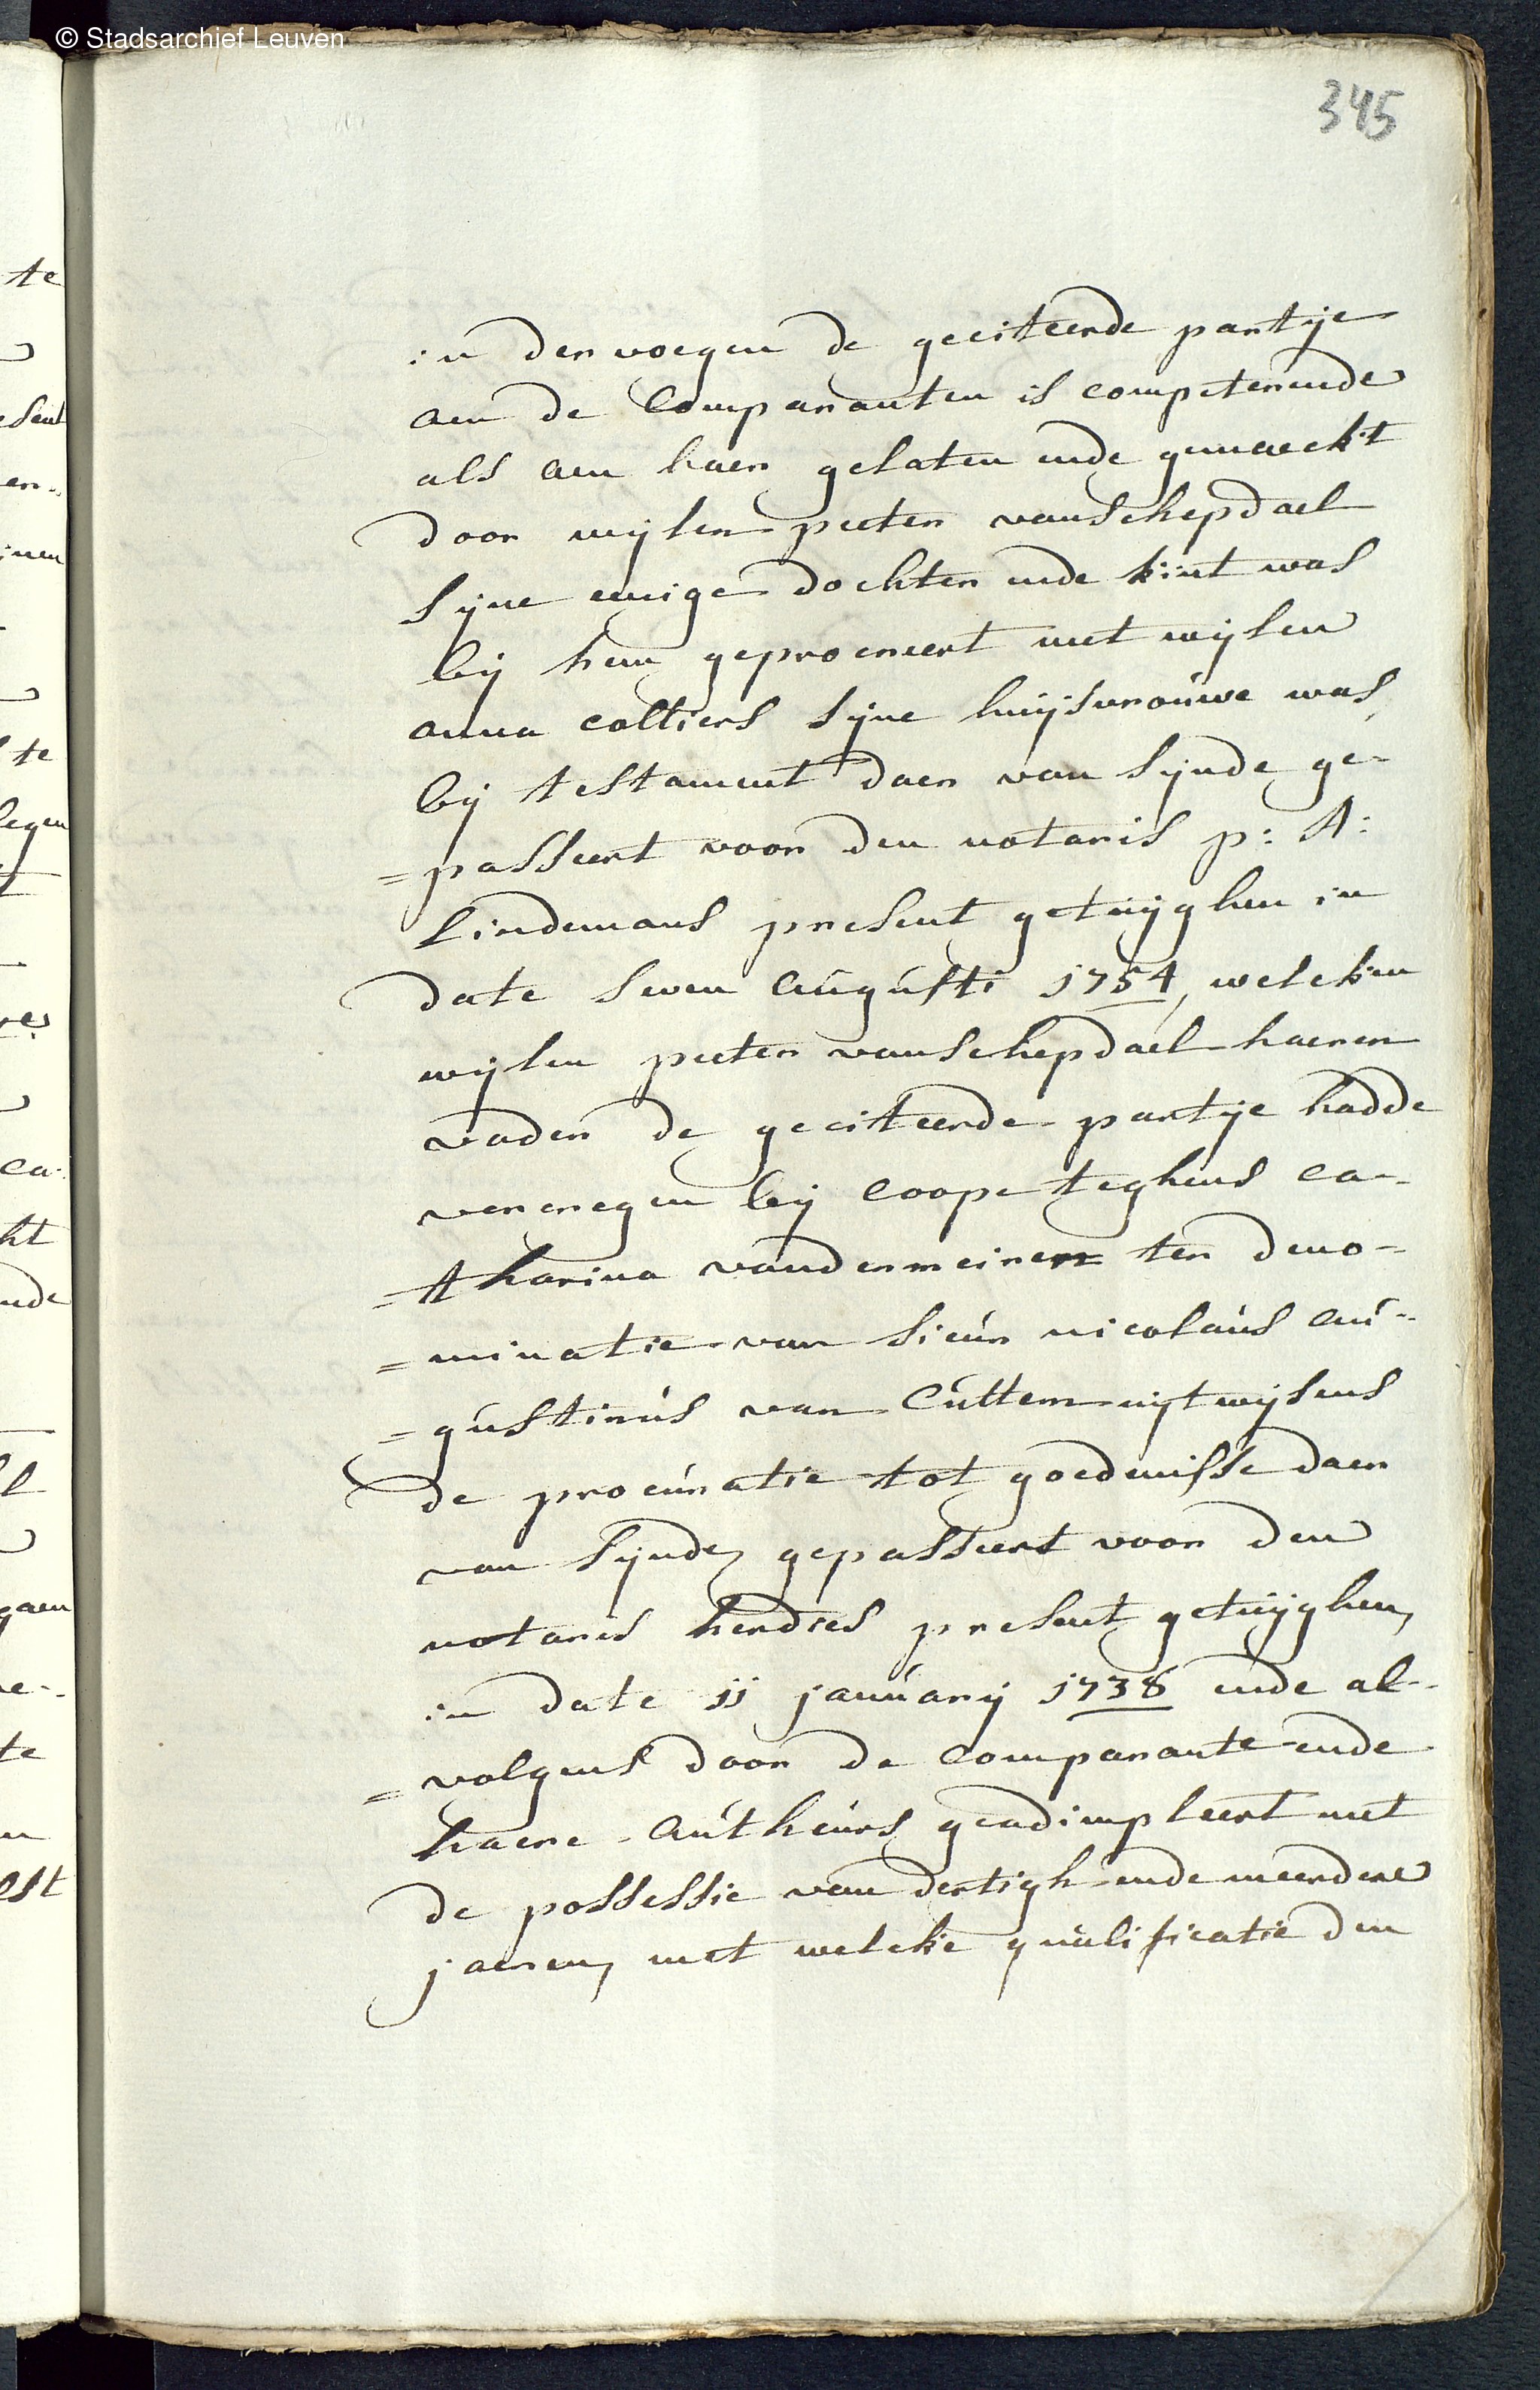 © Stadsarchief Leuven
345
in der voegen de geciteerde partije
aen de Comparanten is competerende
als aen haer gelaten ende gemaeckt
door wijlen peeter vanschepdael
sijne eenige dochter ende kint was
bij hem geprocreert met wijlen
anna coltiers sijne huijsvrouwe was,
bij testament daer van sijnde ge-
=passeert voor den notaris p: A:
Lindemans present getuijghen in
date seven augusti 1754, welcken
wijlen peeter vanschepdael haeren
vader de geciteerde partije hadde
vercregen bij coope teghens ca-
=tharina vandermeiren ter deno-
=minatie van sieur nicolaus au-
=gustinus van Cuttem uijtwijsens
de procuratie tot goedenisse daer
van sijnde gepasseert voor den
notaris herdies present getuijghen,
in date 11 januarij 1738 ende al-
=volgens door de Comparante ende
haere autheurs geadimpleert met
de possessie van dertigh ende meerdere
jaeren, met welcke qualificatie den
te
sent
en..
legen
ca.
ht
nde
gaen
te